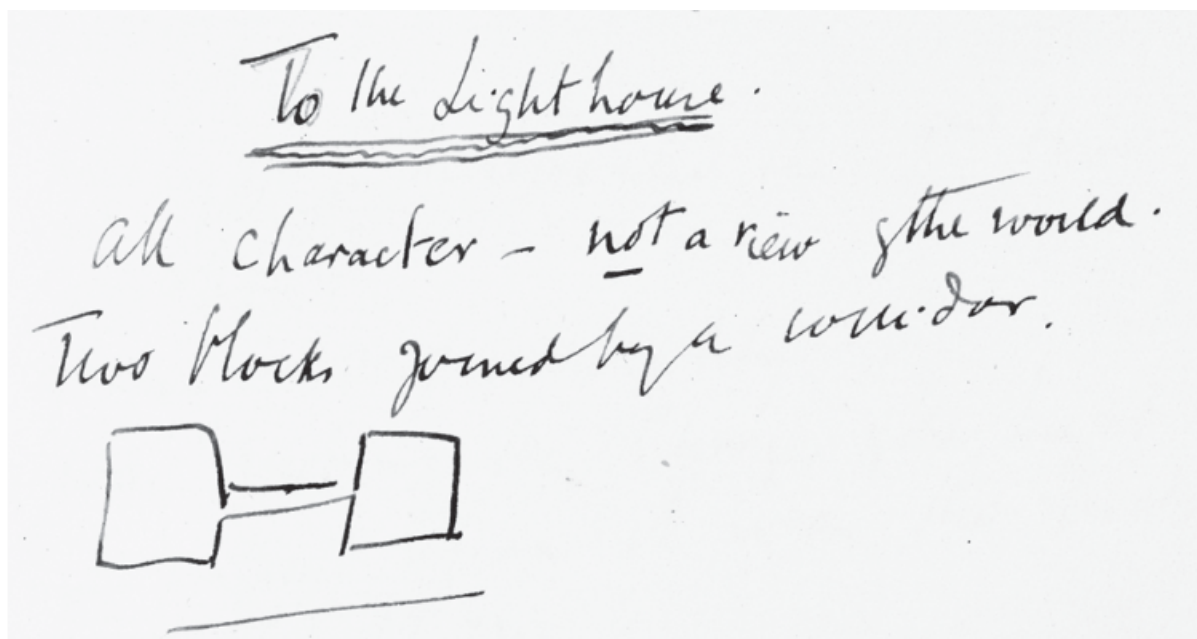 To the Lighthouse.
All character - not a view of the world.
Two blocks joined by a corridor.